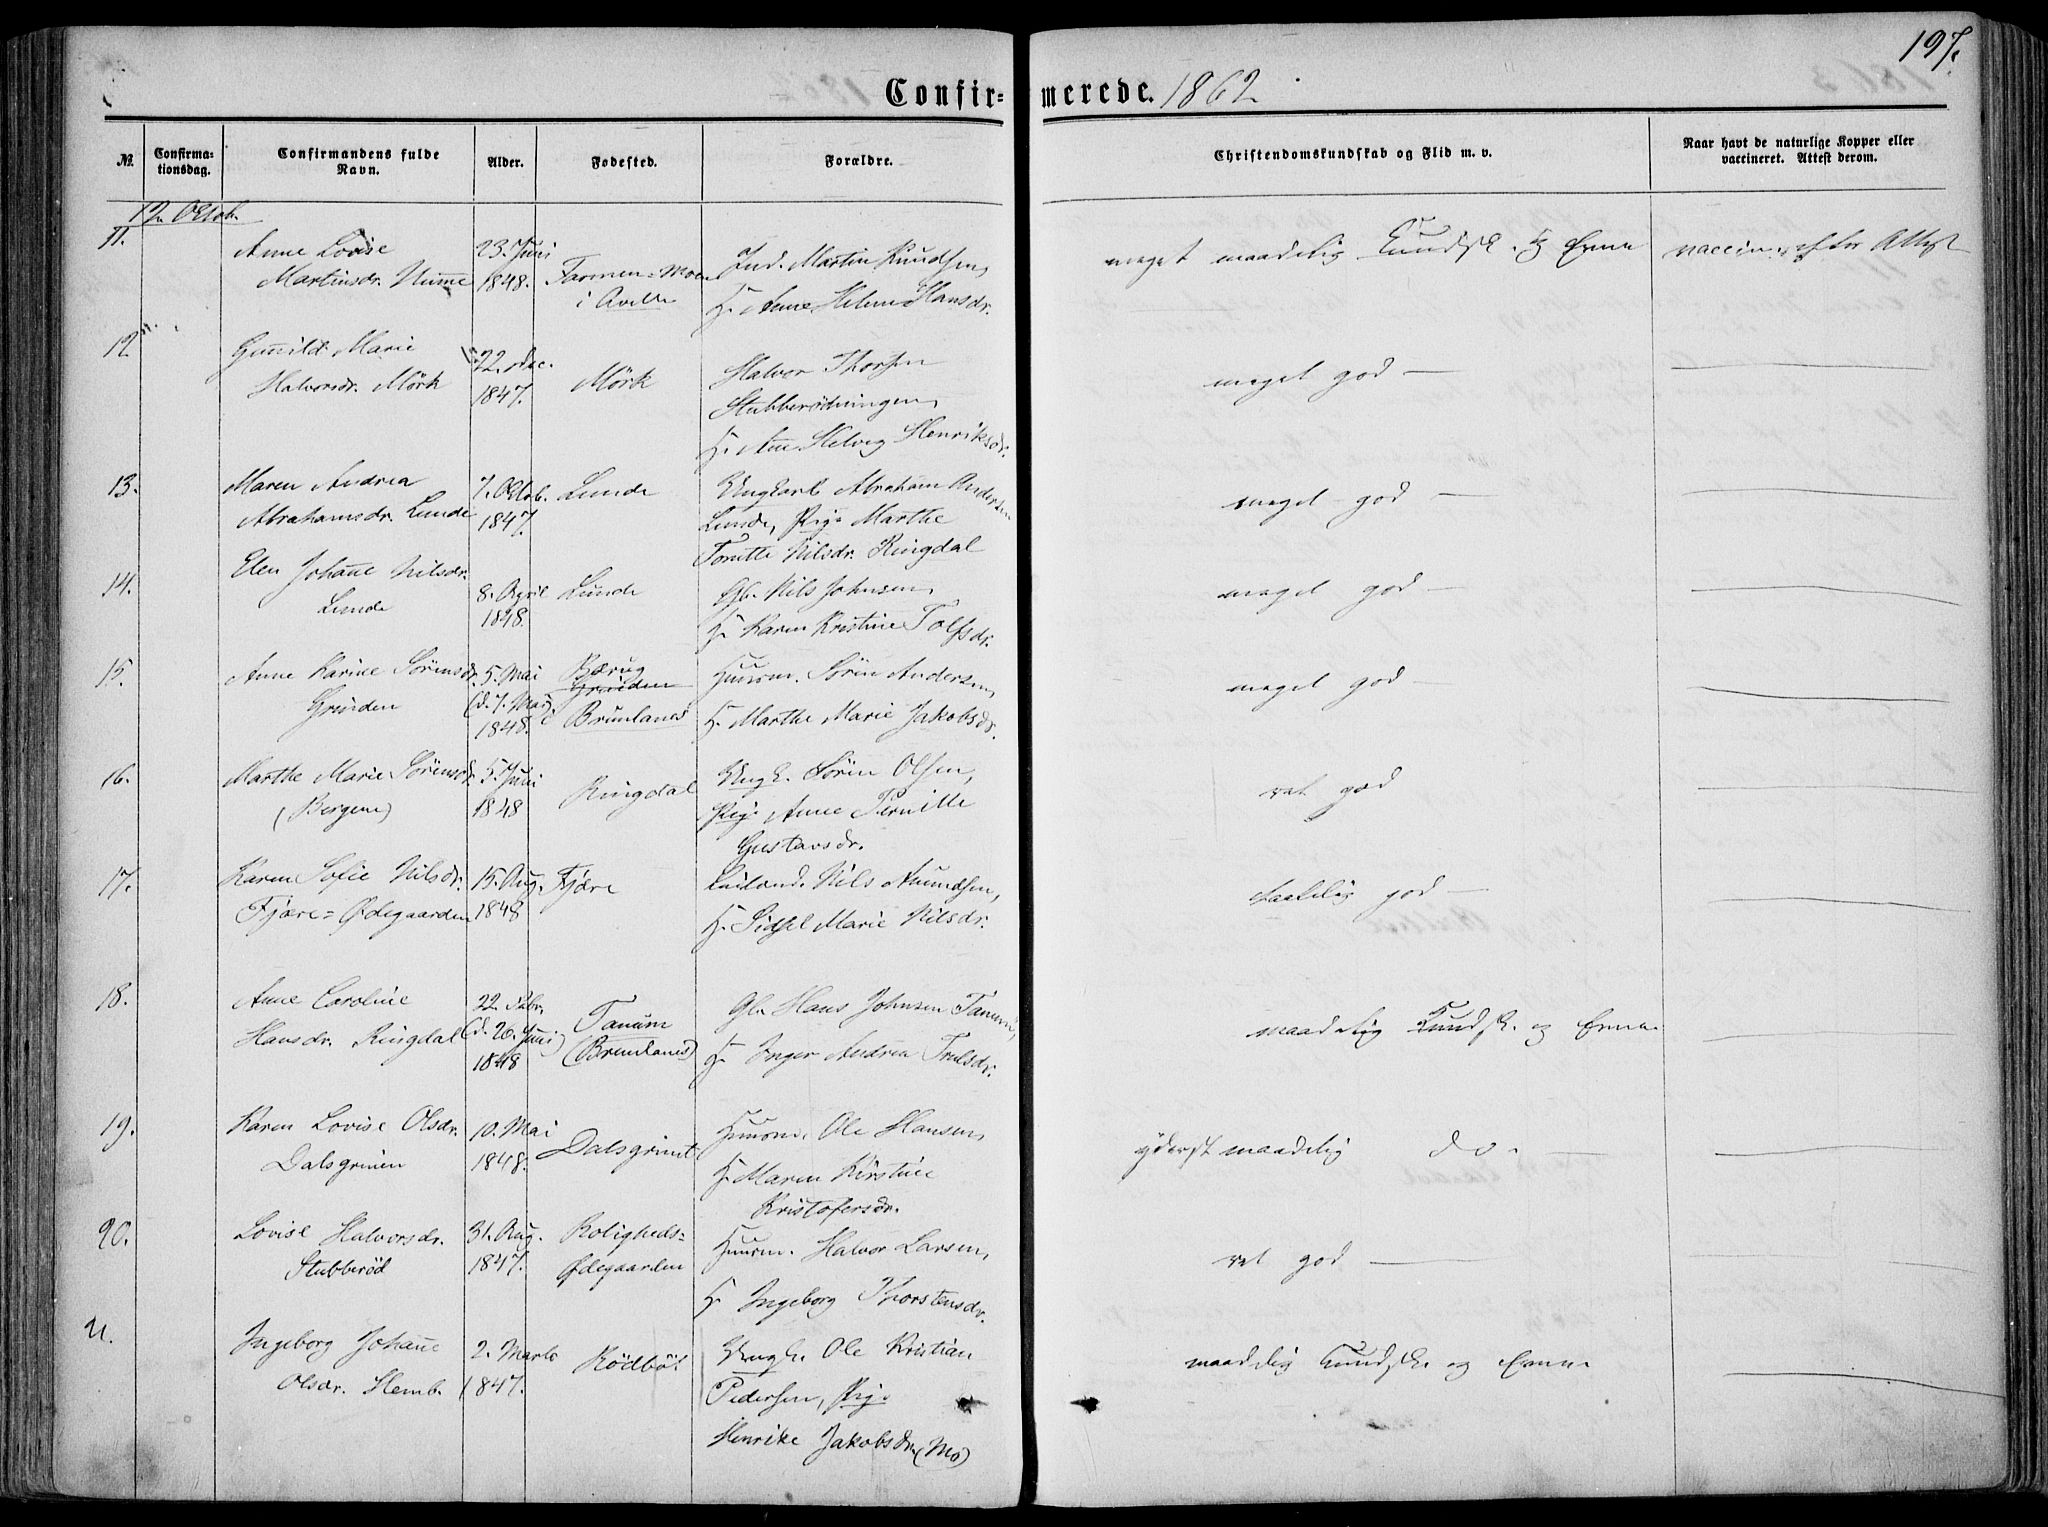 197.
Confir= merede. 1862
№. Confirma-tionsdag. Confirmandens fulde Navn. Alder. Fødested. Forældre. Christendomskundskab og Flid m. v. Naar havt de naturlige Kopper eller vaccineret. Attest derom.
12 Octob.
11. Anne Lovise 23. Juni Ind. Martin Knudsen, meget maadelig Kundsk. og Evne vaccin. efter Attest
Martinsdr. Numme 1848. Farmen=Moen
i H. Anne Helene Hansdr.
12 Gunild Marie 22. Dec. Halvor Thorsen meget god —
Halvorsdr. Mörk 1847. Mörk Stubberödningen,
H. Anne Helvig Henriksdr.
13. Maren Andrea 7. Octob. Lunde Ungkarl Abraham Andersen meget god —
Abrahamsdr. Lunde 1847. Lunde, Pig. Marthe
Torine Nilsdr. Ringdal
14. Elen Johanne Nilsdr. 8. April Lunde Gb. Nils Johnsen, meget god —
Lunde 1848. H. Karen Kristine Tolfsdr.
15. Anne Karine Sörensdr. 5. Mai Bærug Huusm. Sören Andersen, meget god —
Grinden (d. 7. Mai) Grinden
1848. Brunlanes H. Marthe Marie Jakobsdr.
16. Marthe Marie Sörensdr. 5. Juni Ringdal Ungk. Sören Olsen, ret god
(Bergene) 1848 Pig. Anne Pernille
Gustavsdr.
17. Karen Sofie Nilsdr. 15. Aug. Fjære Nils Amundsen, taalelig god —
Fjære=Ødegaarden 1848 H. Sidsel Marie Nilsdr.
18. Anne Caroline 22. Febr. Tanum Gb. Hans Johnsen Tanum, maadelig Kundsk. og Evne
Hansdr. Ringdal (d. 20. Juni) (Brunlanes) H. Inger Andrea Trulsdr.
1848
19. Karen Lovise Olsdr. 10. Mai Dalsgrinet Huusm. Ole Hansen, yderst maadelig do. —
Dalsgrinen 1848. H. Maren Kirstine
Kristofersdr.
20. Lovise Halvorsdr. 31. Aug. Roligheds= Huusm. Halvor Larsen, ret god —
Stubberöd 1847. Ødegaarden
H. Ingeborg Thorstensdr.
21. Ingeborg Johanne 2. Marts Rödböl Ungk. Ole Kristian maadelig Kundsk. og Evne
Olsdr. Hemb. 1847. Pedersen, Pig.
Henrike Jakobsdr. (Mo)